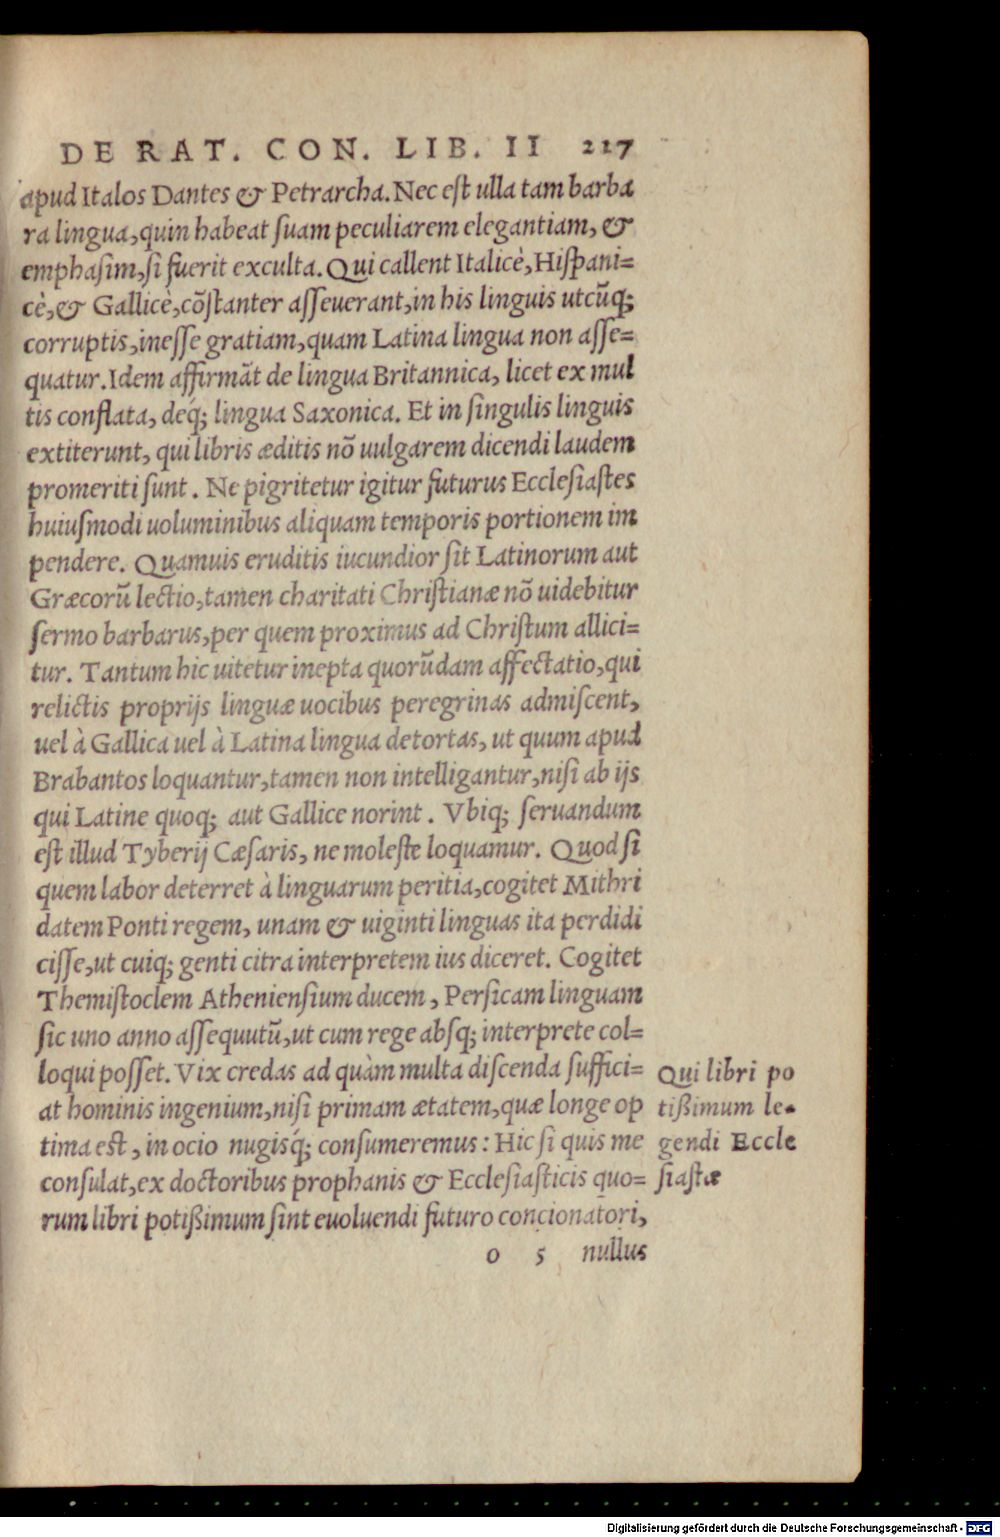 DE RAT. CON. LIB. II 217
apud Italos Dantes & Petrarcha. Nec est ulla tam barba
ra lingua, quin habeat suam peculiarem elegantiam, &
emphasim, si fuerit exculta. Qui callent Italicè, Hispani=
cè, & Gallicè, cõstanter asseuerant, in his linguis utcũq;
corruptis, inesse gratiam, quam Latina lingua non asse=
quatur. Idem affirmãt de lingua Britannica, licet ex mul
tis conflata, deq́; lingua Saxonica. Et in singulis linguis
extiterunt, qui libris æditis nõ uulgarem dicendi laudem
promeriti sunt. Ne pigritetur igitur futurus Ecclesiastes
huiusmodi uoluminibus aliquam temporis portionem im
pendere. Quamuis eruditis iucundior sit Latinorum aut
Græcorũ lectio, tamen charitati Christianæ nõ uidebitur
sermo barbarus, per quem proximus ad Christum allici=
tur. Tantum hic uitetur inepta quorũdam affectatio, qui
relictis proprijs linguæ uocibus peregrinas admiscent,
uel à Gallica uel à Latina lingua detortas, ut quum apud
Brabantos loquantur, tamen non intelligantur, nisi ab ijs
qui Latine quoq; aut Gallice norint. Vbiq; seruandum
est illud Tyberij Cæsaris, ne moleste loquamur. Quod si
quem labor deterret à linguarum peritia, cogitet Mithri
datem Ponti regem, unam & uiginti linguas ita perdidi
cisse, ut cuiq; genti citra interpretem ius diceret. Cogitet
Themistoclem Atheniensium ducem, Persicam linguam
sic uno anno assequutũ, ut cum rege absq; interprete col=
loqui posset. Vix credas ad quàm multa discenda suffici=
at hominis ingenium, nisi primam ætatem, quæ longe op
tima est, in ocio nugisq́; consumeremus: Hic si quis me
consulat, ex doctoribus prophanis & Ecclesiasticis quo=
rum libri potißimum sint euoluendi futuro concionatori,
o 5 nullus
Qui libri po
tißimum le-
gendi Eccle
siastæ
Digitalisierung gefördert durch die Deutsche Forschungsgemeinschaft - DFG